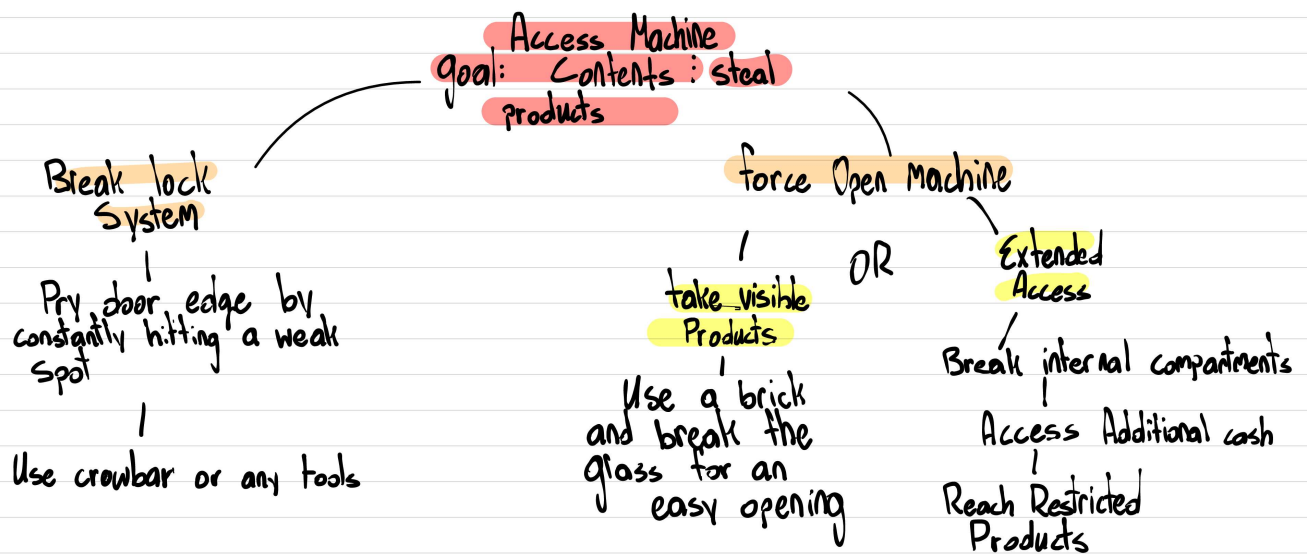 Access Machine
goal: Contents: steal
products
Break lock
System
Pry door edge by
constantly hitting a weak
spot
Use crowbar or any tools
force Open Machine
OR
take visible
Products
Use a brick
and break the
glass for an
easy opening
Extended
Access
Break internal compartments
Access Additional cash
Reach Restricted
Products